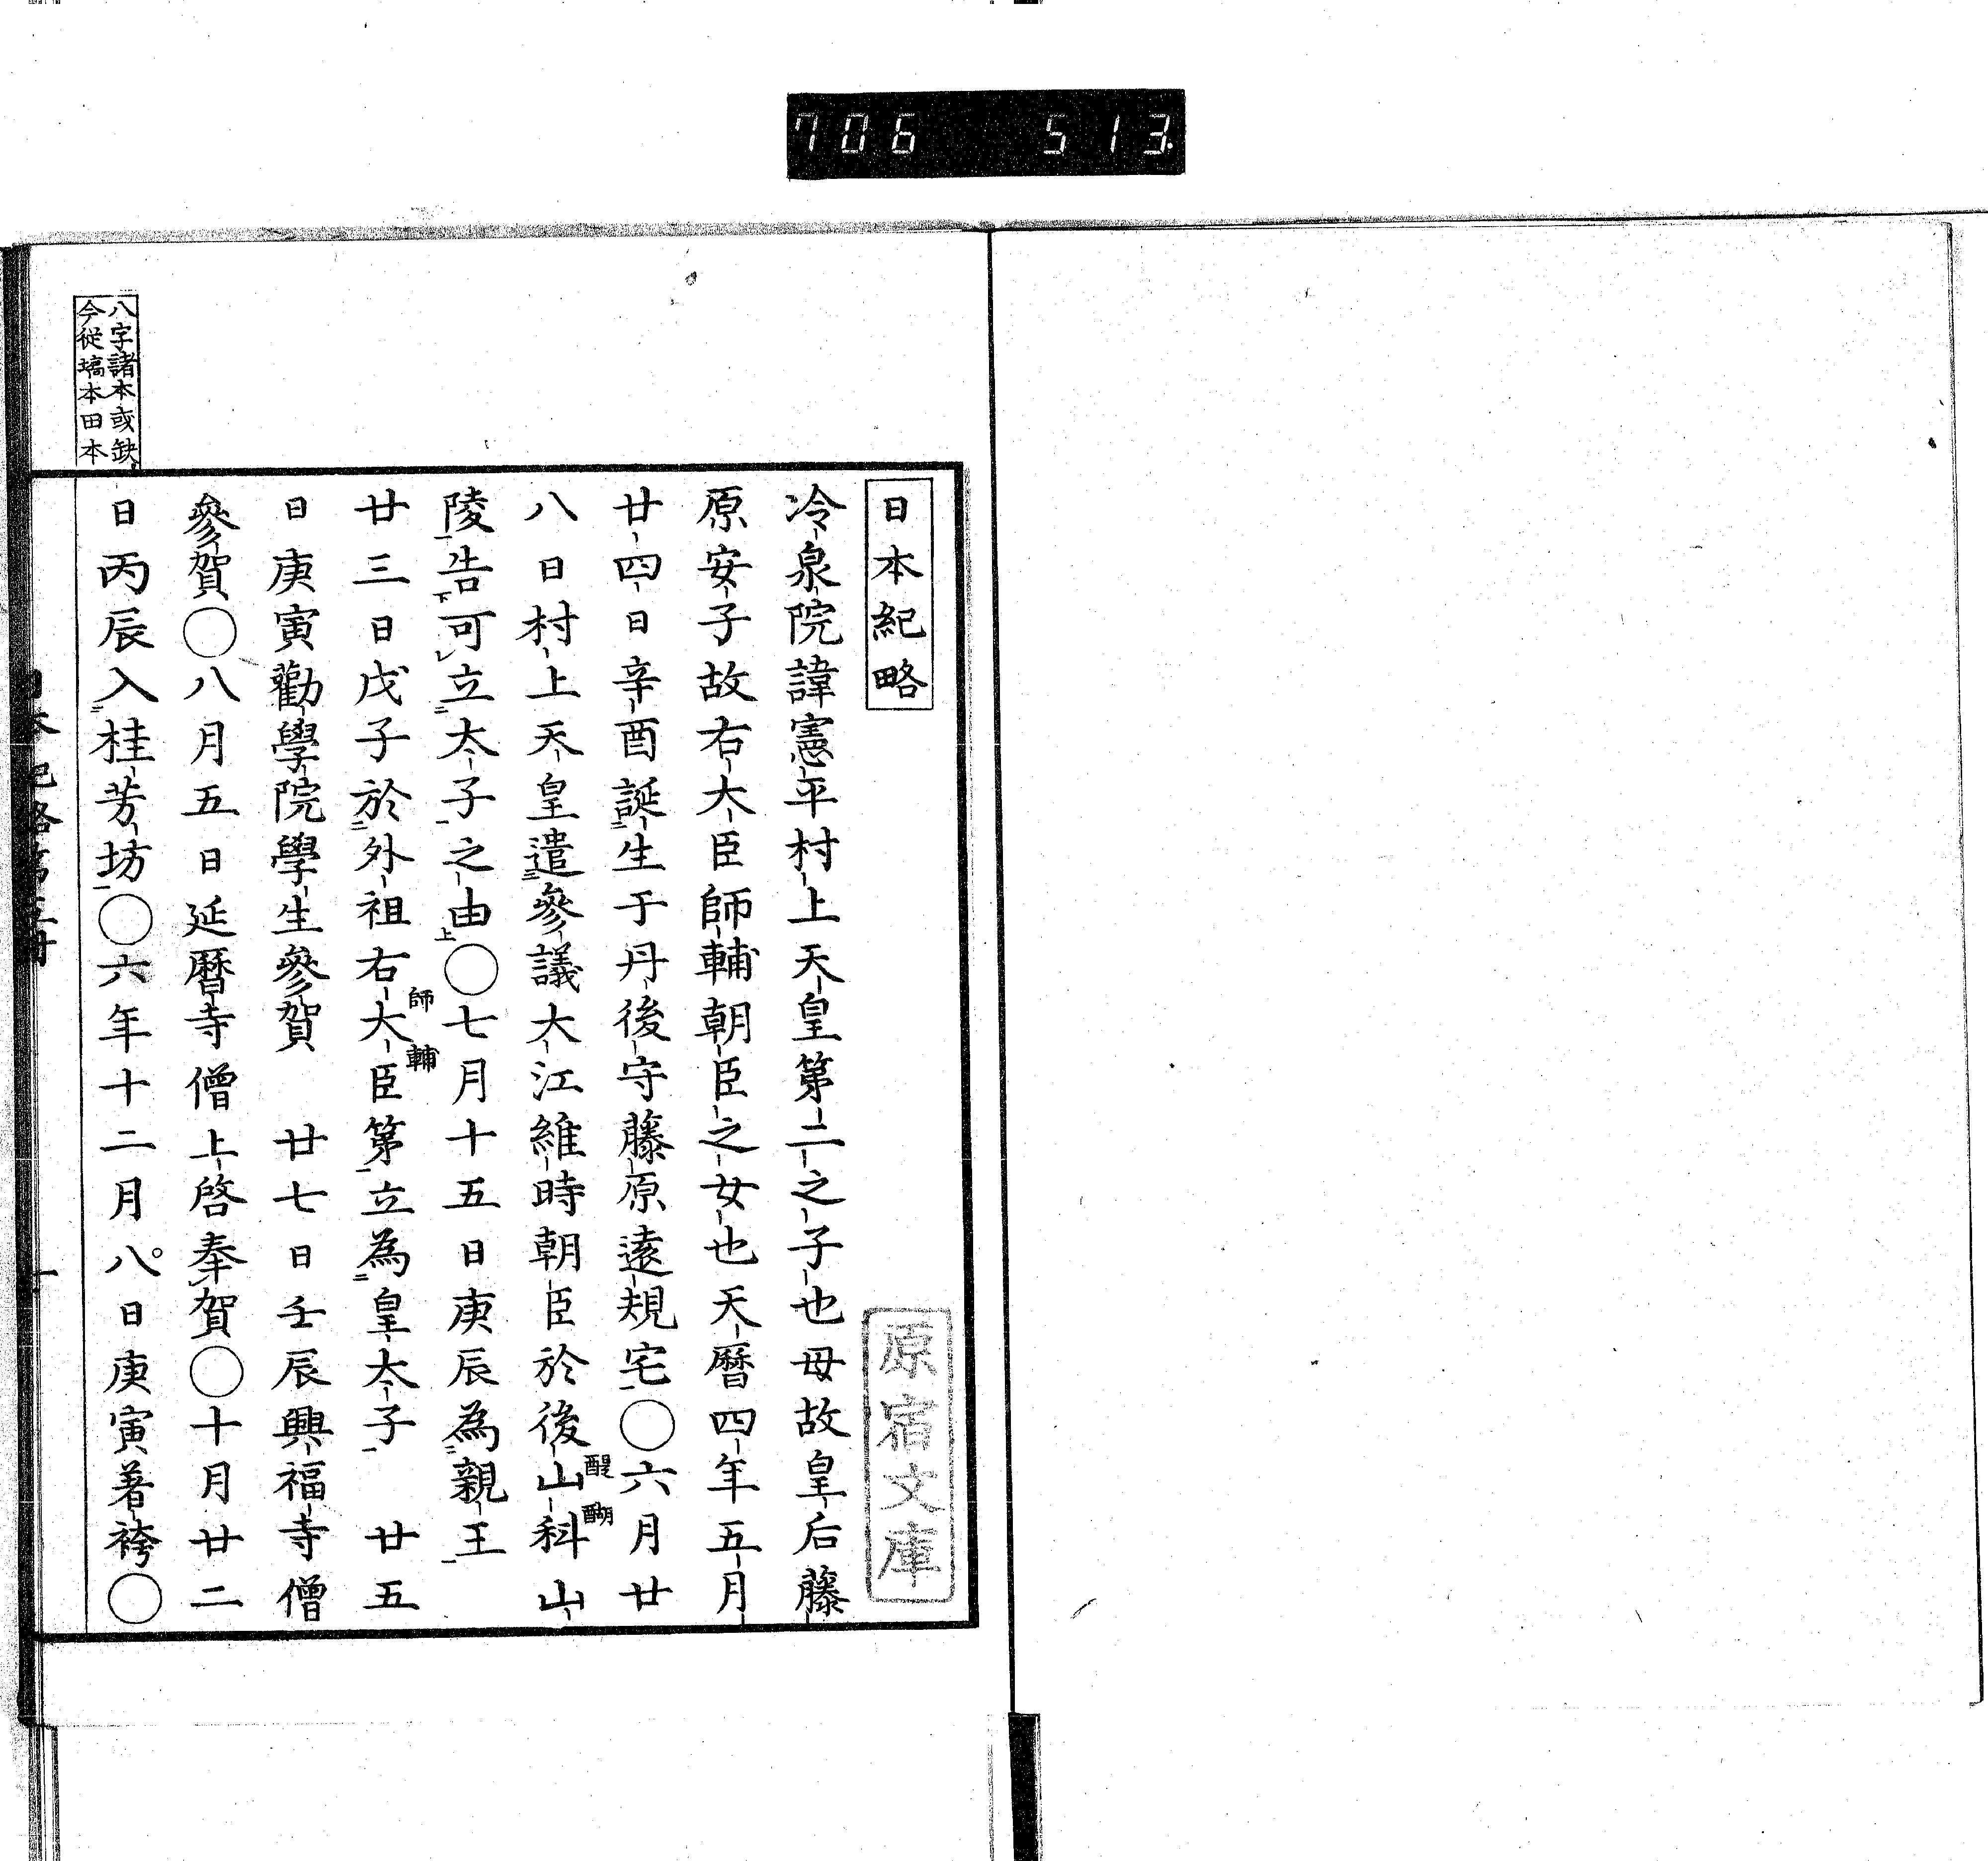 706 513
日本紀略
原宿文庫
冷泉院諱憲平村上天皇第二之子也母故皇后藤
原安子故右大臣師輔朝臣之女也天暦四年五月
廿四日辛酉誕生于丹後守藤原遠規宅〇六月廿
八日村上天皇遣參議大江維時朝臣於後山科山
醍醐
陵告可立太子之由〇七月十五日庚辰為親王
廿三日戊子於外祖右大臣第立為皇太子 廿五
師輔
日庚寅勸學院學生參賀 廿七日壬辰興福寺僧
參賀〇八月五日延暦寺僧上啓奉賀〇十月廿二
日丙辰入桂芳坊〇六年十二月八日庚寅著袴〇
八字諸本或缺
今従塙本田本